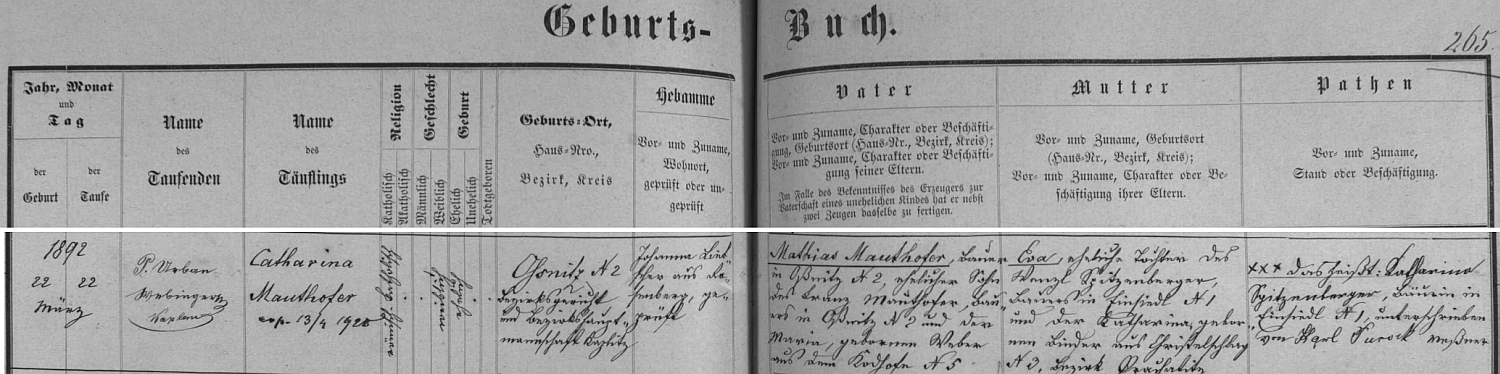 Geburts-
Buch.
265.
Jahr, Monat
und
Tag
der
Geburt
der
Taufe
Name
des
Taufenden
Name
des
Täuflings
Religion
Katholisch
Akatholisch
Geschlecht
Männlich
Weiblich
Geburt
Ehelich
Unehelich
Todtgeboren
Geburts-Ort,
Haus-Nro.,
Bezirk, Kreis
Hebamme
Vor- und Zuname,
Wohnort,
geprüft oder un-
geprüft
Vater
Vor- und Zuname, Charakter oder Beschäfti-
gung, Geburtsort (Haus-Nr., Bezirk, Kreis);
Vor- und Zuname, Charakter oder Beschäfti-
gung seiner Eltern.
Im Falle des Bekenntnisses des Erzeugers zur
Vaterschaft eines unehelichen Kindes hat er nebst
zwei Zeugen dasselbe zu fertigen.
Mutter
Vor- und Zuname, Geburtsort
(Haus-Nr., Bezirk, Kreis);
Vor- und Zuname, Charakter oder Be-
schäftigung ihrer Eltern.
Pathen
Vor- und Zuname,
Stand oder Beschäftigung.
1892
22 22
März
P. Urban
Kaplan
Catharina
Mauthofer
cop. 13/4
Oßnitz N 2
Bezirksgericht
und Bezirkshaupt-
mannschaft Kaplitz
Johanna
aus
ge-
prüft
Mathias Mauthofer, Bauer
in Oßnitz N 2, ehelicher Sohn
des Franz Mauthofer, Bau-
ers in Oßnitz N 2 und der
Maria, gebornen Weber
aus dem Kodhofe N 5
Eva, eheliche Tochter des
Wenzl Spitzenberger,
Bauers in Einsiedl N 1
und der Katharina, gebor-
nen Binder aus Christelschlag
N 3, Bezirk Prachatitz
xxx das heißt: Katharina
Spitzenberger, Bäuerin in
Einsidl N 1, unterschrieben
von Karl Meßner